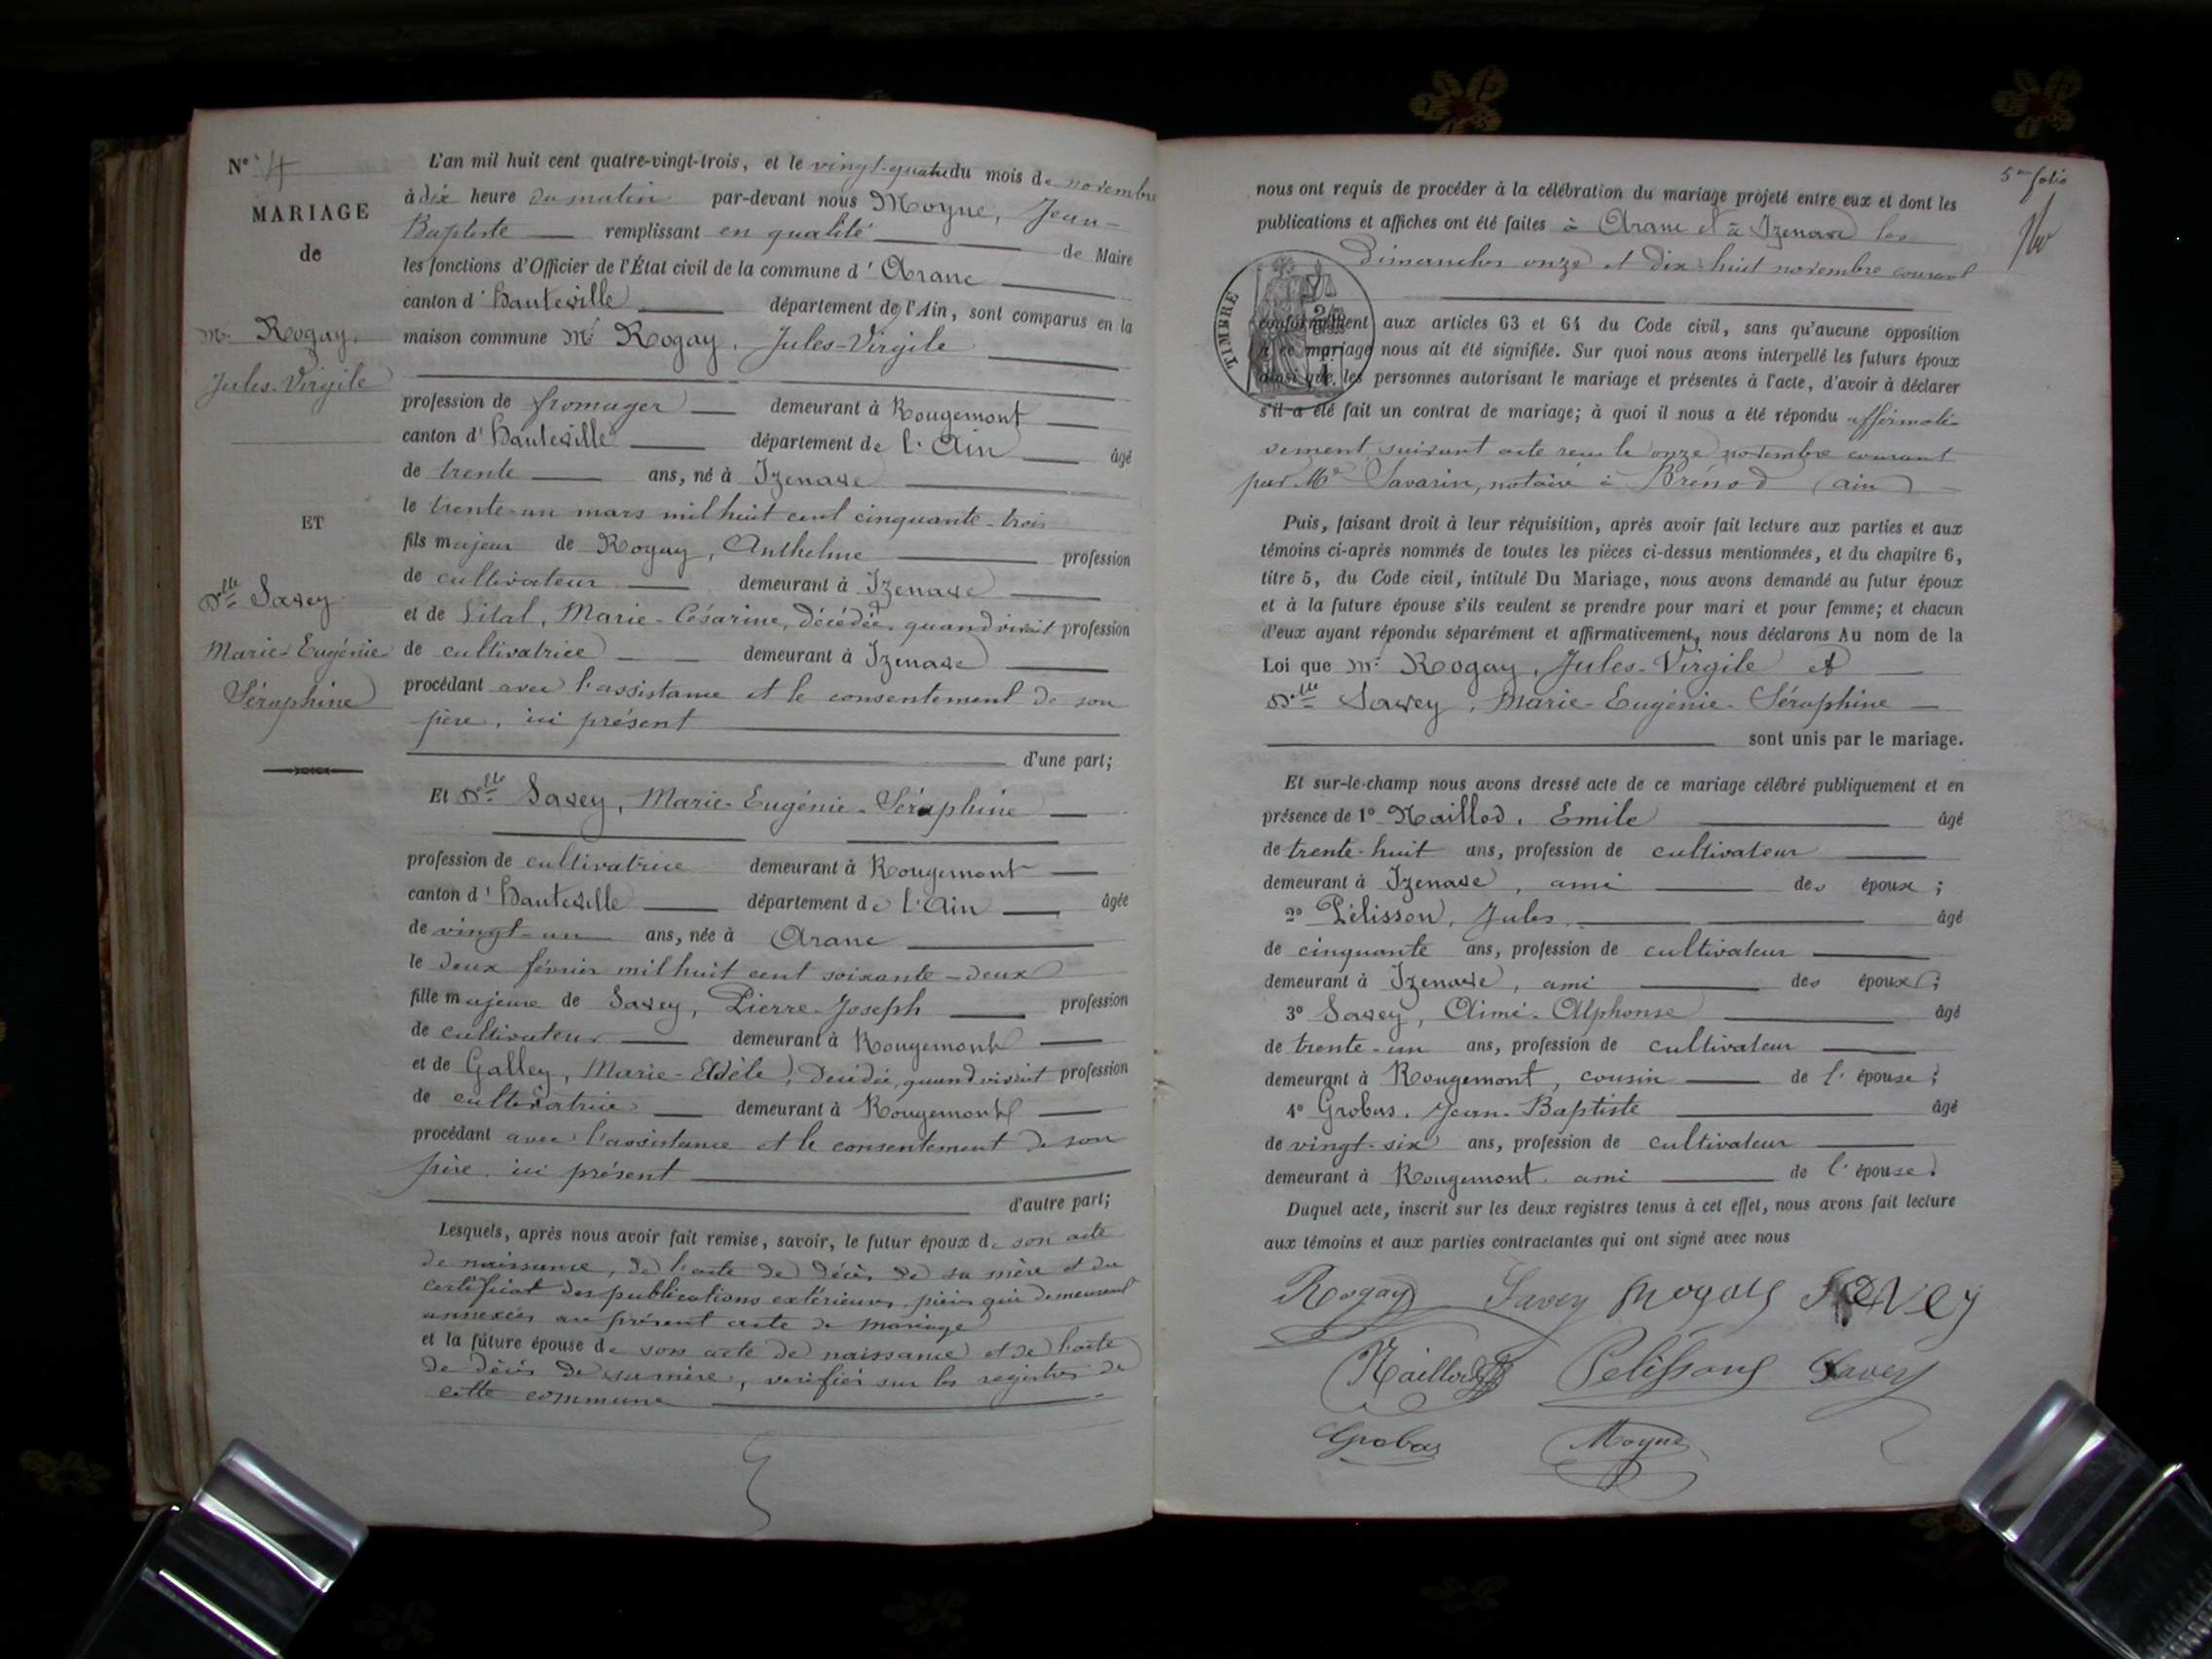 N° 4
MARIAGE
de
Mr. Rogay,
Jules-Virgile
ET
Dlle Savey
Marie-Eugénie
Séraphine
L'an mil huit cent quatre-vingt-trois, et le vingt-quatre du mois de novembre
à dix heure du matin par-devant nous Moyne, Jean-
Baptiste remplissant en qualité de Maire
les fonctions d'Officier de l'État civil de la commune d'Aranc
canton d'hauteville département de l'Ain, sont comparus en la
maison commune Mr Rogay, Jules-Virgile
profession de fromager demeurant à Rougemont
canton d'hauteville département de l'Ain âgé
de trente ans, né à Izenave
le trente-un mars mil huit cent cinquante-trois
fils majeur de Rogay, Anthelme profession
de cultivateur demeurant à Izenave
et de Vital, Marie-Césarine, décédée, quand vivait profession
de cultivatrice demeurant à Izenave
procédant avec l'assistance et le consentement de son
père, ici présent
d'une part;
Et Dlle Savey, Marie-Eugénie-Séraphine
profession de cultivatrice demeurant à Rougemont
canton d'hauteville département de l'Ain âgée
de vingt-un ans, née à Aranc
le deux février mil huit cent soixante-deux
fille majeure de Savey, Pierre-Joseph profession
de cultivateur demeurant à Rougemont
et de Galley, Marie-Adèle, décédée, quand vivait profession
de cultivatrice demeurant à Rougemont
procédant avec l'assistance et le consentement de son
père, ici présent
d'autre part;
Lesquels, après nous avoir fait remise, savoir, le futur époux de son acte
de naissance, de l'acte de décès de sa mère et du
certificat des publications extérieures, pièces qui demeurent
annexées au présent acte de mariage
et la future épouse de son acte de naissance et de l'acte
de décès de sa mère, vérifiés sur les registres de
cette commune
5me folio
nous ont requis de procéder à la célébration du mariage projeté entre eux et dont les
publications et affiches ont été faites à Aranc et à Izenave les
Dimanches onze et dix-huit novembre courant
TIMBRE
conformément aux articles 63 et 64 du Code civil, sans qu'aucune opposition
à ce mariage nous ait été signifiée. Sur quoi nous avons interpellé les futurs époux
ainsi que les personnes autorisant le mariage et présentes à l'acte, d'avoir à déclarer
s'il a été fait un contrat de mariage; à quoi il nous a été répondu affirmati-
vement suivant acte reçu le onze novembre courant
par Me Savarin, notaire à Brénod (ain)
Puis, faisant droit à leur réquisition, après avoir fait lecture aux parties et aux
témoins ci-après nommés de toutes les pièces ci-dessus mentionnées, et du chapitre 6,
titre 5, du Code civil, intitulé Du Mariage, nous avons demandé au futur époux
et à la future épouse s'ils veulent se prendre pour mari et pour femme; et chacun
d'eux ayant répondu séparément et affirmativement, nous déclarons Au nom de la
Loi que Mr. Rogay, Jules-Virgile et
Dlle Savey, Marie-Eugénie-Séraphine
sont unis par le mariage.
Et sur-le-champ nous avons dressé acte de ce mariage célébré publiquement et en
présence de 1° Maillod, Emile âgé
de trente-huit ans, profession de cultivateur
demeurant à Izenave, ami des époux;
2° Pélisson, Jules âgé
de cinquante ans, profession de cultivateur
demeurant à Izenave, ami des époux;
3° Savey, Aimé-Alphonse âgé
de trente-un ans, profession de cultivateur
demeurant à Rougemont, cousin de l'épouse;
4° Grobas, Jean-Baptiste âgé
de vingt-six ans, profession de cultivateur
demeurant à Rougemont, ami de l'épouse.
Duquel acte, inscrit sur les deux registres tenus à cet effet, nous avons fait lecture
aux témoins et aux parties contractantes qui ont signé avec nous
Rogay Savey Rogay Savey
Maillod Pelissons Savey
Grobas Moyne